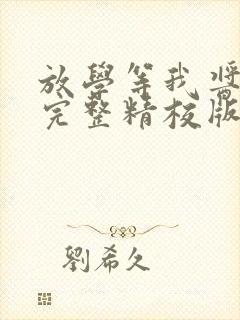 放學等我 醬
完整精校版
劉希久